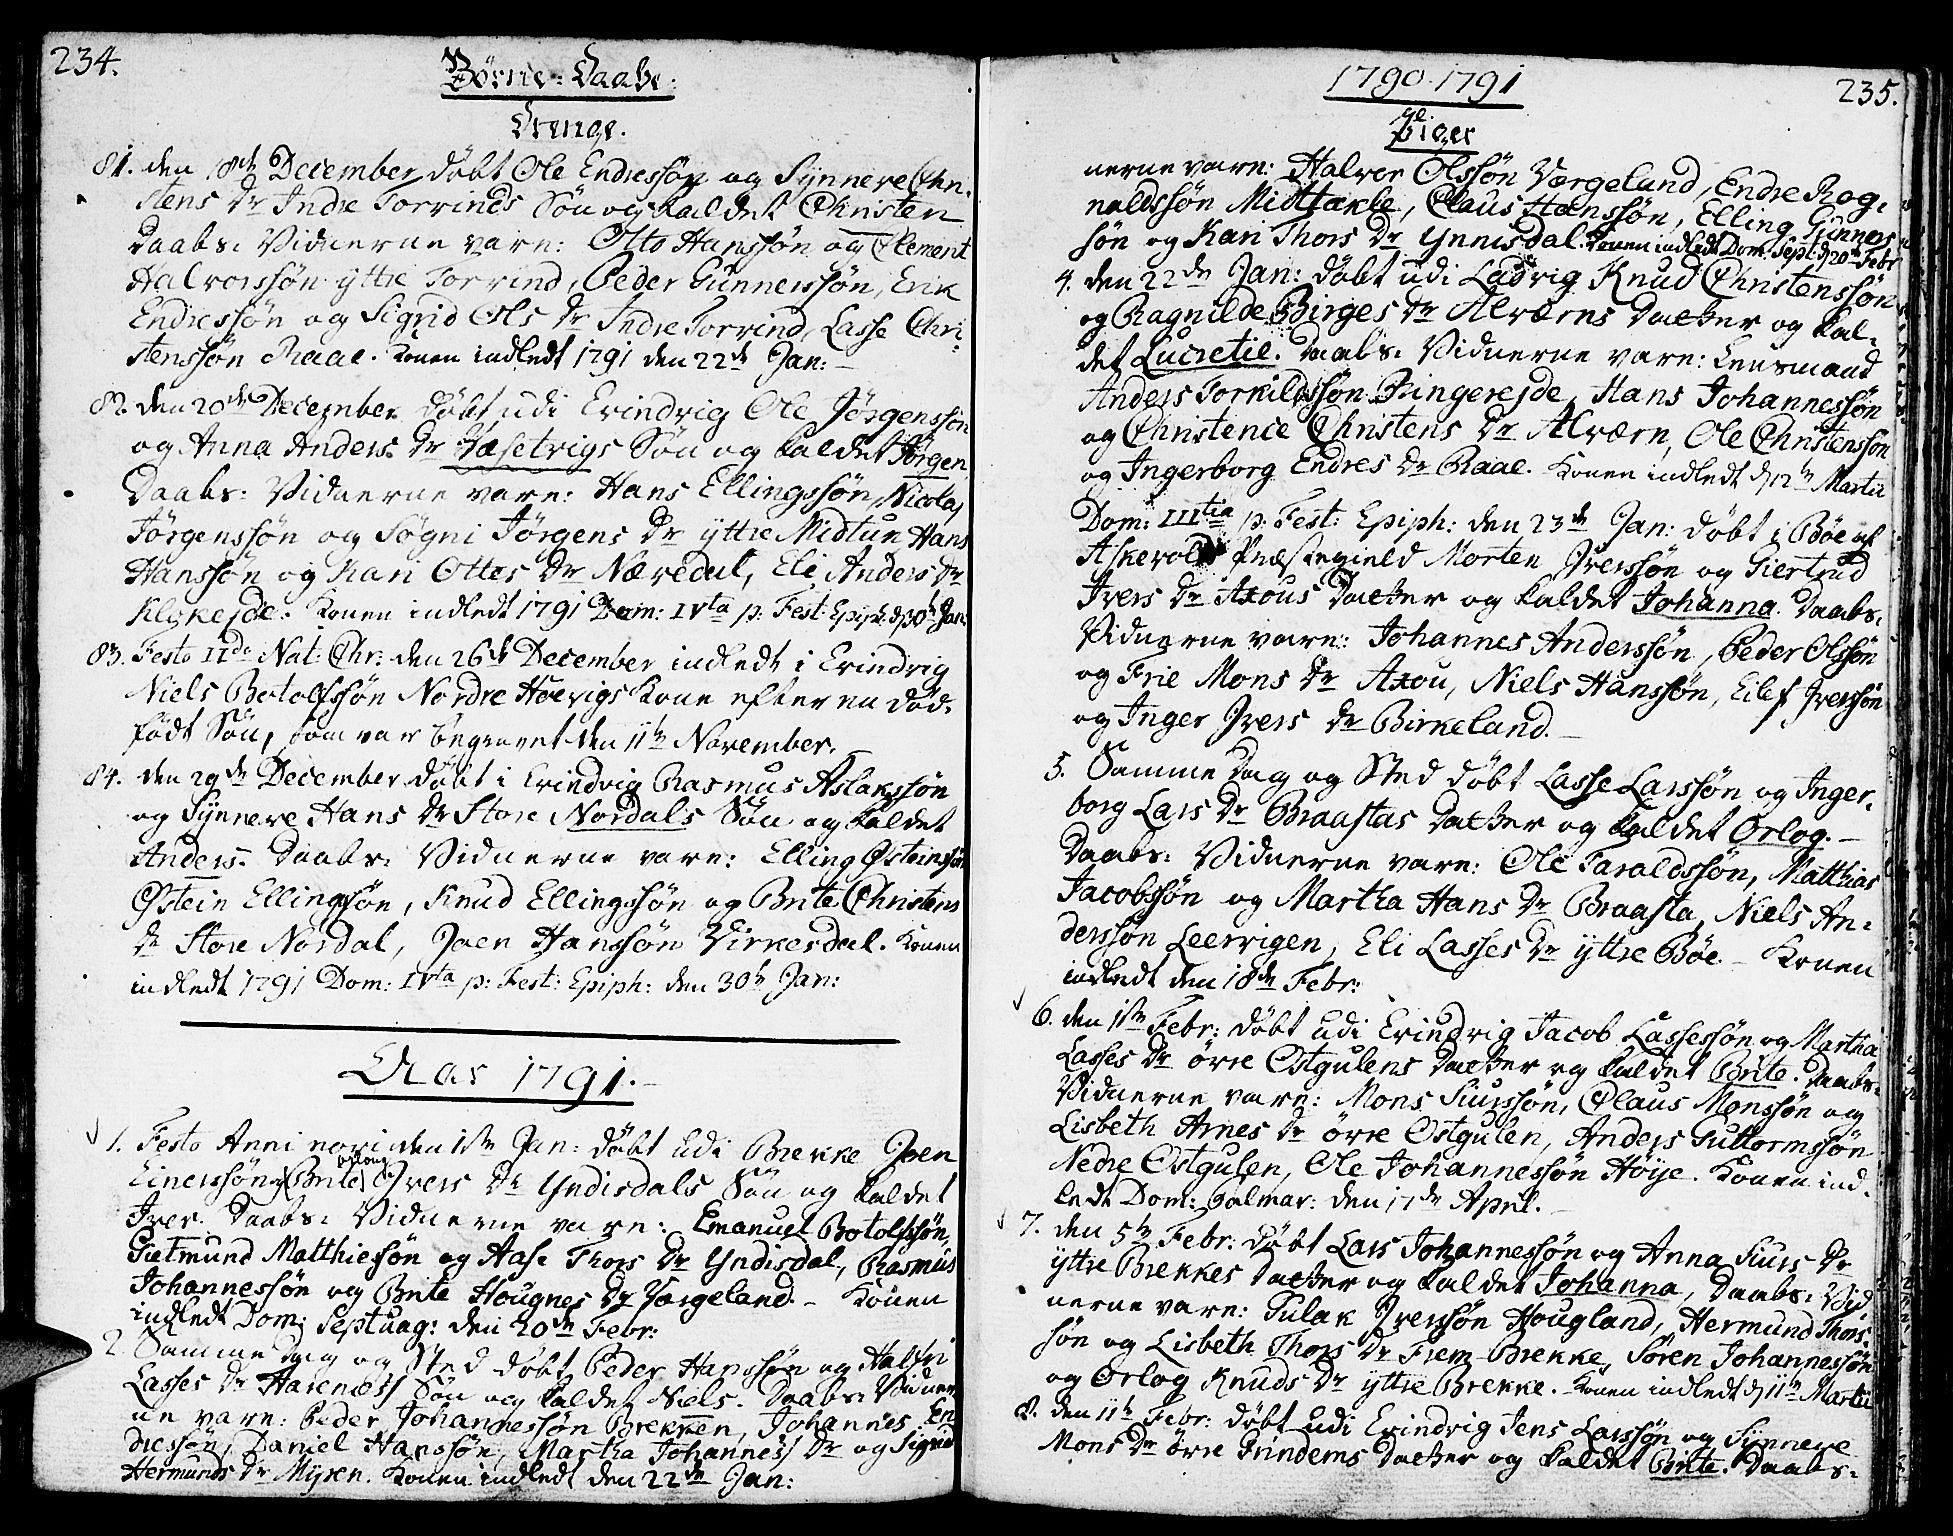 234.
Börne-Daabe.
Drenge.
81. den 18de December döbt Ole Endressön og Synneve Chri-
stens Dr Indre Torvinds Sön og kaldet Christen
Daabs: Vidnerne vare: Otto Hanssön og Clement
Halvorssön yttre Torvind, Peder Gunnerssön, Erik
Endressön og Sigrid Ols Dr Indre Torvind, Lasse Chri-
stenssön Raae. Konen indledt 1791 den 22de Jan:
82. den 20de December döbt udi Evindvig Ole Jörgenssön
og Anna Anders Dr Hasetvigs Sön og kaldet Jörgen
Daabs: Vidnerne vare: Hans Ellingssön, Nicolaj
Jörgenssön og Sögni Jörgens Dr yttre Midtun, Hans
Hanssön og Kari Ottes Dr Næredal, Eli Anders Dr
Klokejde. Konen indledt 1791 Dom: IVta p: Fest: Epiph: d 30te Jan:
83. Festo IIdo Nat: Chr: den 26de December indledt i Evindvig
Niels Botolfssön Nordre Höevigs Kone efter en död-
födt Sön, som var begravet den 11te November.
84. den 29de December döbt i Evindvig Rasmus Aslakssön
og Synneve Hans Dr Store Nordals Sön og kaldet
Anders. Daabs: Vidnerne vare: Elling Østeinssön
Østein Ellingsön, Knud Ellingssön og Brite Christens
Dr Store Nordal, Joen Hanssön Virkesdal. Konen
indledt 1791 Dom: IVta p: Fest: Epiph: den 30te Jan:
Aar 1791.
1. Festo Anni novi den 1ste Jan: döbt udi Brekke Joen
Einerssön og Brite Ivers Dr Yndisdals Sön og kaldet
Iver. Daabs: Vidnerne vare: Emanuel Botolfssön,
Gietmund Matthiessön og Aase Thors Dr Yndisdal, Rasmus
Johannessön og Brite Hougnes Dr Værgeland. Konen
indledt Dom: Septuag: den 20de Febr:
2. Samme Dag og Sted döbt Peder Hanssön og Halfri
Lasses Dr Harenes's Sön og kaldet Niels. Daabs: Vidner-
ne vare: Peder Johannessön Brekken, Johannes En-
dressön, Daniel Hanssön, Martha Johannes's Dr og Sigrid
Hermunds Dr Myren. Konen indledt den 22de Jan:
1790-1791
235.
Piger
nerne vare: Halvor Olssön Værgeland, Endre Rog-
naldssön Midttækle, Claus Hanssön, Elling Gunners
sön og Kari Thors Dr Ynnisdal. Konen indledt Dom. Sept: d 20de Febr
4. den 22de Jan: döbt udi Ladvig Knud Christenssön
og Ragnilde Birges Dr Alværns Datter og kal-
det Lucretie. Daabs: Vidnerne vare: Lensmand
Anders Torkildssön Ringerejde, Hans Johannessön
og Christence Christens Dr Alværn, Ole Christenssön
og Ingerborg Endres Dr Raae. Konen indledt d 12te Martii
Dom: IIItia p: Fest: Epiph: den 23de Jan: döbt i Böe af
Askevold Præstegield Morten Iverssön og Giertrud
Ivers Dr Axous Datter og kaldet Johanna. Daabs:
Vidnerne vare: Johannes Anderssön, Peder Olssön
og Frie Mons Dr Axou, Niels Hanssön, Eilef Iverssön
og Inger Ivers Dr Birkeland.
5. Samme Dag og Sted döbt Lasse Larssön og Inger-
borg Lars Dr Braastas Datter og kaldet Orlog.
Daabs: Vidnerne vare: Ole Taraldssön, Matthias
Jacobssön og Martha Hans Dr Braasta, Niels An-
derssön Leervigen, Eli Lasses Dr yttre Böe. Konen
indledt den 18de Febr:
6. den 1ste Febr: döbt udi Evindvig Jacob Lassessön og Martha
Lasses Dr övre Ostgulens Datter og kaldet Brite. Daabs:
Vidnerne vare: Mons Siurssön, Claus Monssön og
Lisbeth Arnes Dr övre Ostgulen, Anders Guttormssön
Nedre Ostgulen, Ole Johannessön Höye. Konen ind-
ledt Dom: Palmar: den 17de April.
7. den 5te Febr: döbt Lars Johannessön og Anna Siurs Dr
yttre Brekkes Datter og kaldet Johanna, Daabs: Vid
nerne vare: Tulak Iverssön Hougland, Hermund Thors-
sön og Lisbeth Thors Dr Frem-Brekke, Sören Johannessön
og Orlog Knuds Dr yttre Brekke. Konen indledt d 11te Martii
8. den 11te Febr: döbt udi Evindvig Jens Larssön og Synneve
Mons Dr övre Trindems Datter og kaldet Brite. Daabs: